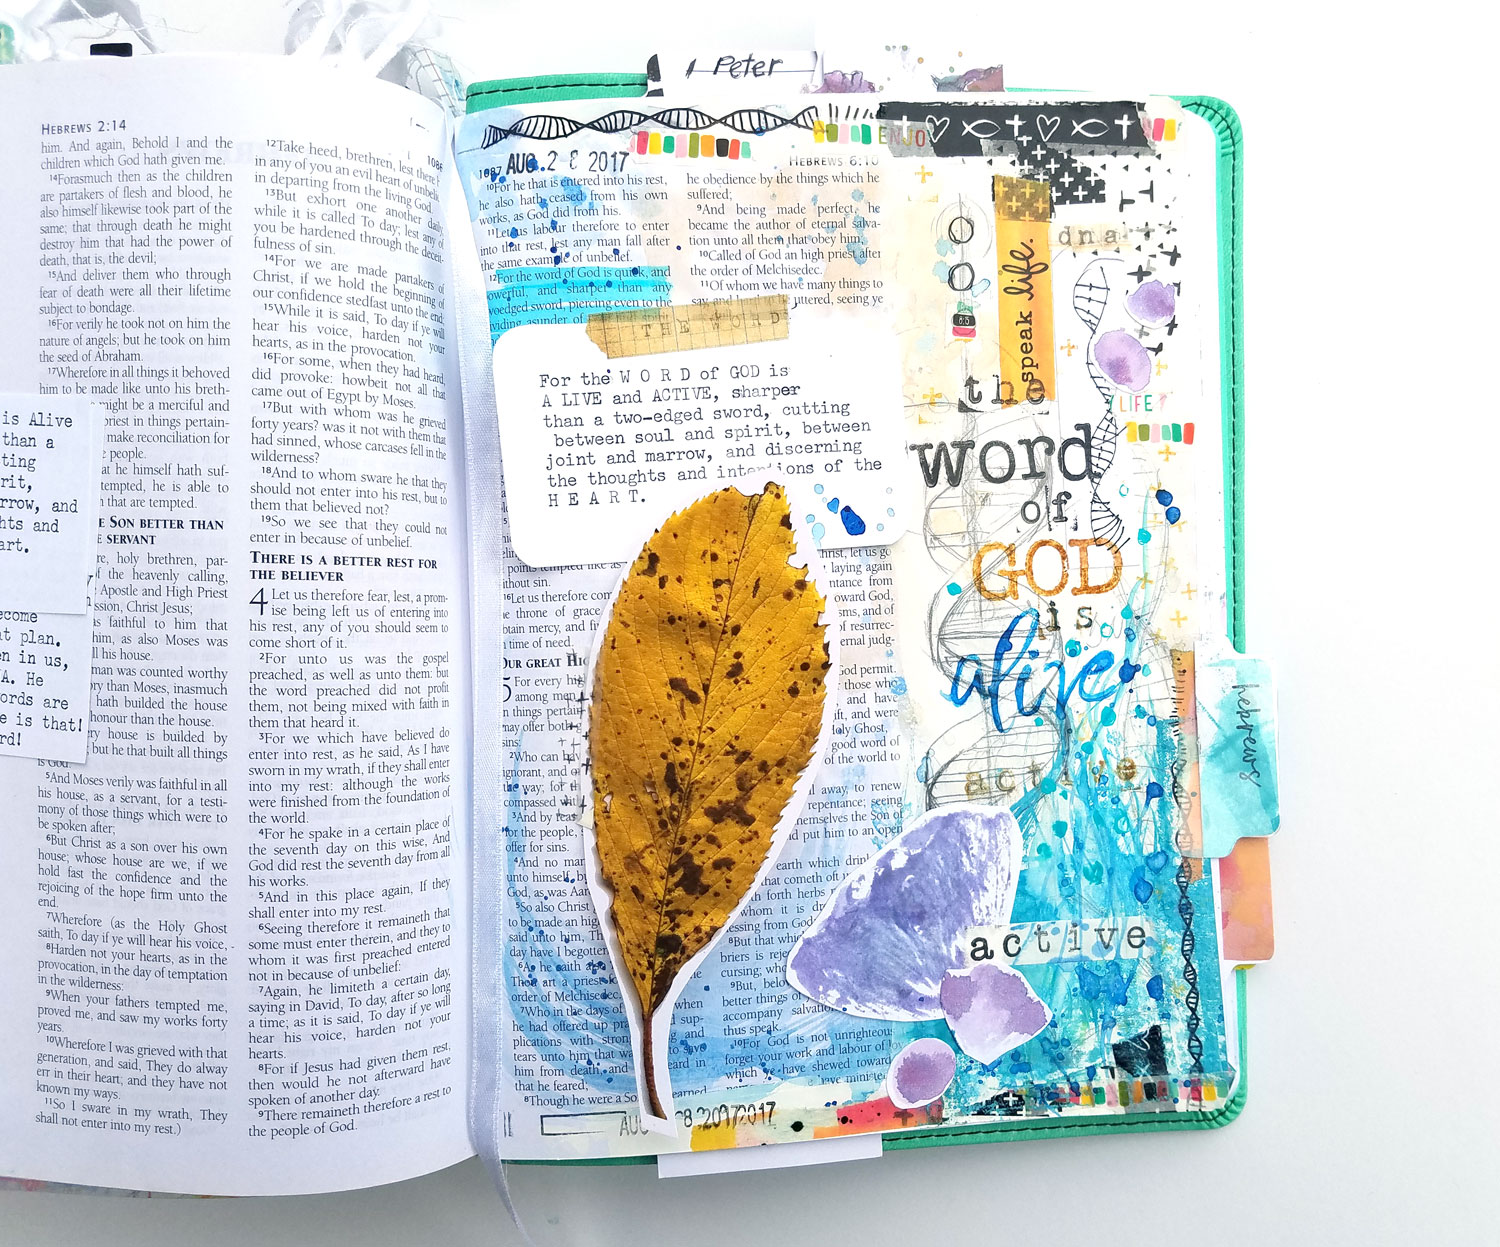 HEBREWS 2:14
him. And again, Behold I and the
children which God hath given me.
14Forasmuch then as the children
are partakers of flesh and blood, he
also himself likewise took part of the
same; that through death he might
destroy him that had the power of
death, that is, the devil;
15And deliver them who through
fear of death were all their lifetime
subject to bondage.
16For verily he took not on him the
nature of angels; but he took on him
the seed of Abraham.
17Wherefore in all things it behoved
him to be made like unto his breth-
might be a merciful and
priest in things pertain-
make reconciliation for
people.
at he himself hath suf-
tempted, he is able to
that are tempted.
SON BETTER THAN
SERVANT
holy brethren, par-
the heavenly calling,
Apostle and High Priest
Christ Jesus;
faithful to him that
him, as also Moses was
all his house.
man was counted worthy
than Moses, inasmuch
hath builded the house
honour than the house.
house is builded by
but he that built all things
is God.
5And Moses verily was faithful in all
his house, as a servant, for a testi-
mony of those things which were to
be spoken after;
6But Christ as a son over his own
house; whose house are we, if we
hold fast the confidence and the
rejoicing of the hope firm unto the
end.
7Wherefore (as the Holy Ghost
saith, To day if ye will hear his voice,
8Harden not your hearts, as in the
provocation, in the day of temptation
in the wilderness:
9When your fathers tempted me,
proved me, and saw my works forty
years.
10Wherefore I was grieved with that
generation, and said, They do alway
err in their heart; and they have not
known my ways.
11So I sware in my wrath, They
shall not enter into my rest.)
is Alive
than a
ting
rit,
rrow, and
hts and
art.
ecome
at plan.
en in us,
A. He
ords are
e is that!
rd!
12Take heed, brethren, lest there
in any of you an evil heart of
in departing from the living God.
13But exhort one another daily,
while it is called To day; lest any of
you be hardened through the deceit-
fulness of sin.
14For we are made partakers of
Christ, if we hold the beginning of
our confidence stedfast unto the end;
15While it is said, To day if ye will
hear his voice, harden not your
hearts, as in the provocation.
16For some, when they had heard,
did provoke: howbeit not all that
came out of Egypt by Moses.
17But with whom was he grieved
forty years? was it not with them that
had sinned, whose carcases fell in the
wilderness?
18And to whom sware he that they
should not enter into his rest, but to
them that believed not?
19So we see that they could not
enter in because of unbelief.
THERE IS A BETTER REST FOR
THE BELIEVER
4 Let us therefore fear, lest, a prom-
ise being left us of entering into
his rest, any of you should seem to
come short of it.
2For unto us was the gospel
preached, as well as unto them: but
the word preached did not profit
them, not being mixed with faith in
them that heard it.
3For we which have believed do
enter into rest, as he said, As I have
sworn in my wrath, if they shall enter
into my rest: although the works
were finished from the foundation of
the world.
4For he spake in a certain place of
the seventh day on this wise, And
God did rest the seventh day from all
his works.
5And in this place again, If they
shall enter into my rest.
6Seeing therefore it remaineth that
some must enter therein, and they to
whom it was first preached entered
not in because of unbelief:
7Again, he limiteth a certain day,
saying in David, To day, after so long
a time; as it is said, To day if ye will
hear his voice, harden not your
hearts.
8For if Jesus had given them rest,
then would he not afterward have
spoken of another day.
9There remaineth therefore a rest to
the people of God.
1 Peter
ENJO
1087 AUG. 2 8 2017
10For he that is entered into his rest,
he also hath ceased from his own
works, as God did from his.
11Let us labour therefore to enter
into that rest, lest any man fall after
the same example of unbelief.
12For the word of God is quick, and
powerful, and sharper than any
twoedged sword, piercing even to the
dividing asunder of
THE WORD
For the W O R D of GOD is
A LIVE and ACTIVE, sharper
than a two-edged sword, cutting
between soul and spirit, between
joint and marrow, and discerning
the thoughts and intentions of the
H E A R T.
HEBREWS 6:10
he obedience by the things which he
suffered;
9And being made perfect, he
became the author of eternal salva-
tion unto all them that obey him;
10Called of God an high priest after
the order of Melchisedec.
11Of whom we have many things to
say and uttered, seeing ye
without sin.
16Let us therefore com
throne of grace
obtain mercy, and
time of need.
OUR GREAT
5 For every
among men
in things pertain
may offer both
sins:
2Who can
ignorant, and
the way; for
compassed
3And by
for the people,
offer for sins.
4And no man
unto himself,
God, as was
5So also Christ
to be made an high
said unto him, Th
day have I begotten
6As he saith
Thou art a priest
order of Melchisedec.
7Who in the days of when
he had offered up sup-
plications with strong and
tears unto him that was to save
him from death, heard in
that he feared;
8Though he were a Son learned
let us go
laying again
from
and of
resurrec-
eternal judg-
God permit.
those who
and have
gift, and were
Holy Ghost,
good word of
the world to
away, to renew
repentance; seeing
themselves the Son of
put him to an open
earth which
that cometh oft
forth herbs
whom it is
blessing from God
8But that which
briers is
cursing; whose
9But, beloved
better things of
accompany salvation
thus speak.
10For God is not unrighteous
forget your work and labour of
which ye have shewed toward
AUG 8 20172017
speak life.
dna
LIFE
the
word
of
GOD
is
alive
active
active
hebrews